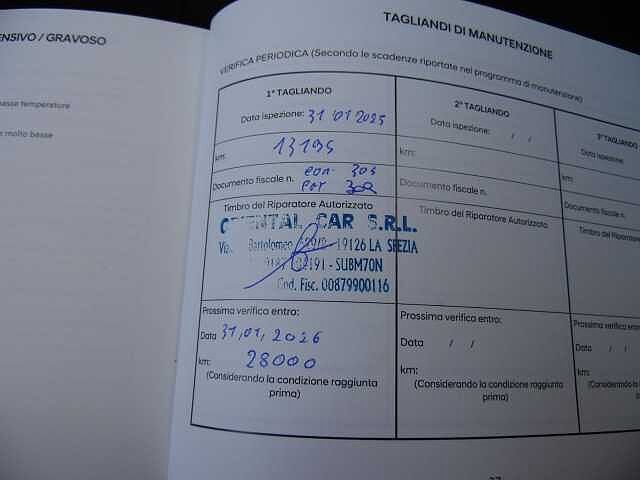 ENSIVO / GRAVOSO
basse temperature
e molto basse
TAGLIANDI DI MANUTENZIONE
VERIFICA PERIODICA (Secondo le scadenze riportate nel programma di manutenzione)
1° TAGLIANDO
Data ispezione: 31 01 2025
km: 13195
Documento fiscale n.
Timbro del Riparatore Autorizzato
ORIENTAL CAR S.R.L.
Bartolomeo 19126 LA SPEZIA
- SUBM70N
Cod. Fisc. 00879900116
Prossima verifica entro:
Data 31,01,2026
km: 28000
(Considerando la condizione raggiunta
prima)
2° TAGLIANDO
Data ispezione: / /
km:
Documento fiscale n.
Timbro del Riparatore Autorizzato
Prossima verifica entro:
Data / /
km:
(Considerando la condizione raggiunta
prima)
3° TAGLIANDO
Data ispezione:
km:
Documento fiscale n.
Timbro del Ripar
Prossima verifica entro:
Data /
km:
(Considerando la